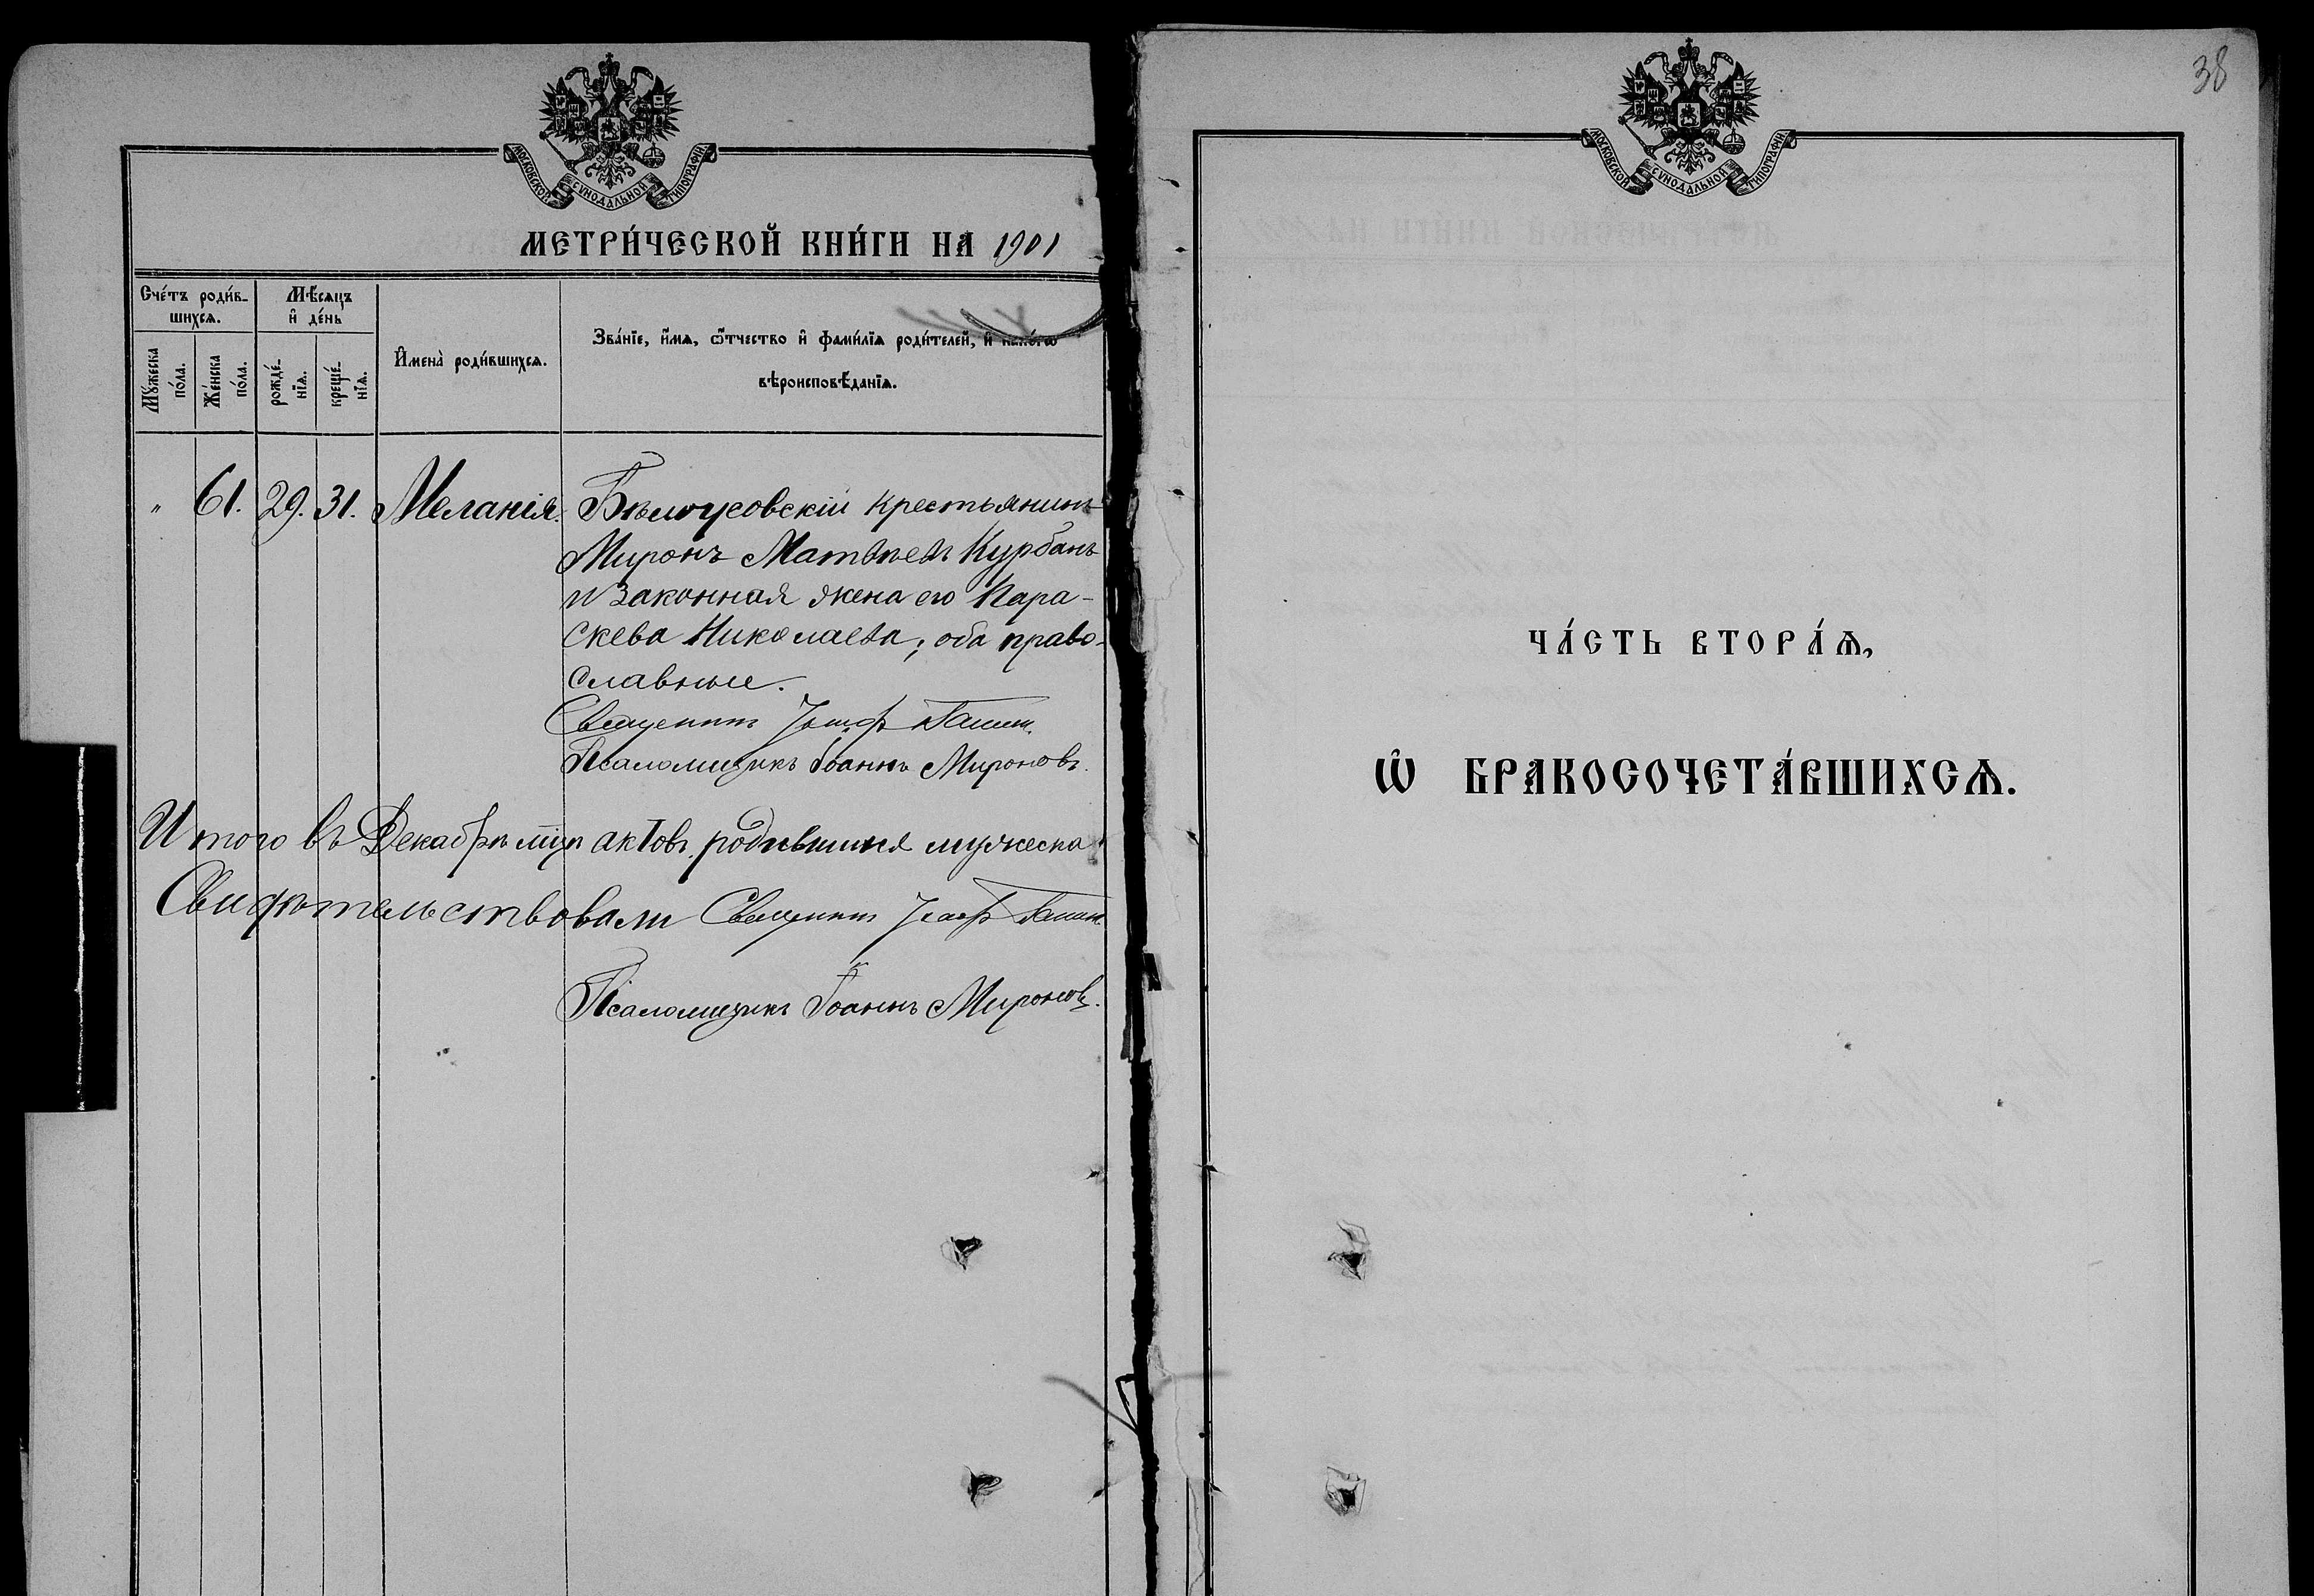 МОСКОВСКОЙ СѴНОДАЛЬНОЙ ТИПОГРАФІИ
МЕТРИ́ЧЕСКОЙ КНИ́ГИ НА 1901
Сче́тъ роди́в-
шихсѧ.
Мѣ́сѧцъ
и҆ де́нь
Мꙋ́жеска
по́ла.
Же́нска
по́ла.
рожде́-
нїѧ.
креще́-
нїѧ.
И҆мена̀ роди́вшихсѧ.
Зва́нїе, и҆́мѧ, ѻ҆́тчество и҆ фами́лїѧ роди́телей, и҆ како́гѡ
вѣроисповѣ́данїѧ.
" 61. 29. 31. Меланія. Бѣлоусовскій крестьянинъ
Миронъ Матвѣевъ Курбанъ
и законная жена его Пара-
скева Николаева; оба право-
славные.
Священникъ
Псаломщикъ Іоаннъ Мироновъ.
Итого въ Декабрѣ мцѣ актовъ родившихся мужеска
Свидѣтельствовали Священникъ
Псаломщикъ Іоаннъ Мироновъ.
38
МОСКОВСКОЙ СѴНОДАЛЬНОЙ ТИПОГРАФІИ
ЧА́СТЬ ВТОРА́Ѧ,
Ѡ҆ БРАКОСОЧЕТА́ВШИХСѦ.